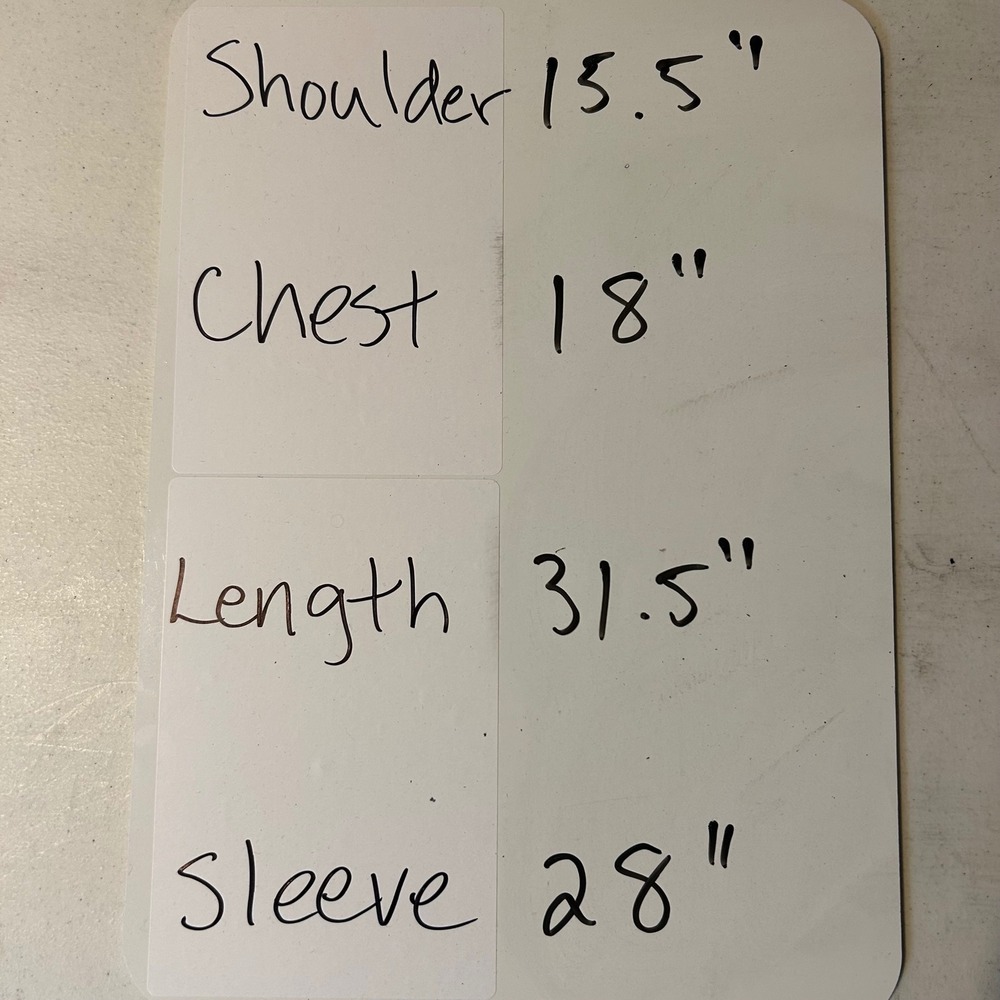 Shoulder 15.5"
Chest 18"
Length 31.5"
Sleeve 28"